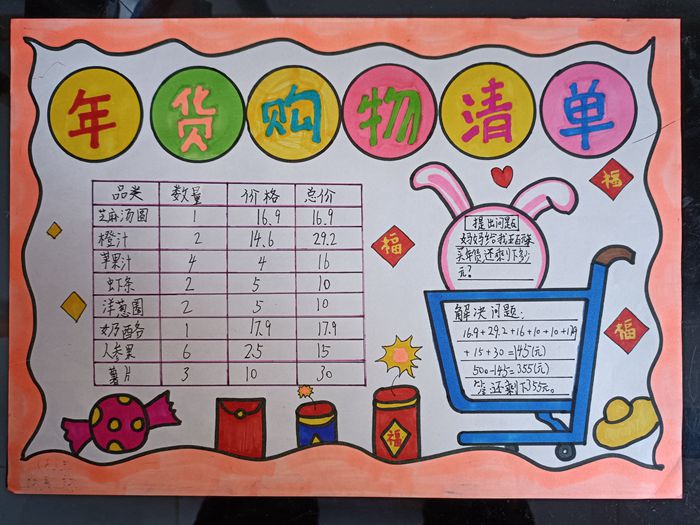 年货购物清单
品类 数量 价格 总价
芝麻汤圆 1 16.9 16.9
橙汁 2 14.6 29.2
苹果汁 4 4 16
虾条 2 5 10
洋葱圈 2 5 10
奶酪 1 17.9 17.9
人参果 6 2.5 15
薯片 3 10 30
提出问题
妈妈给我五百来
买年货,还剩下多少
元?
解决问题:
16.9+29.2+16+10+10+17.9
+15+30=145(元)
500-145=355(元)
答:还剩下355元。
福
福
福
福